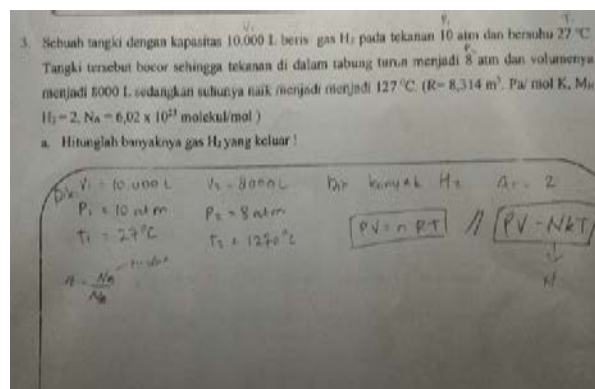 V₁ P₁ T₁
3. Sebuah tangki dengan kapasitas 10.000 L berisi gas H₂ pada tekanan 10 atm dan bersuhu 27 °C.
P₂
Tangki tersebut bocor sehingga tekanan di dalam tabung turun menjadi 8 atm dan volumenya
menjadi 8000 L sedangkan suhunya naik menjadi menjadi 127 °C. (R= 8,314 m³. Pa/ mol K, Mr
H₂ = 2, NA = 6,02 x 10²³ molekul/mol )
a. Hitunglah banyaknya gas H₂ yang keluar !
Dik V₁ = 10.000 L V₂ = 8000 L Dit banyak H₂ Ar = 2
P₁ = 10 atm P₂ = 8 atm PV = n RT // PV = NkT
T₁ = 27°C T₂ = 1270°C
N